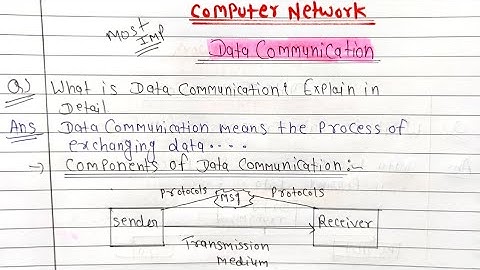 Computer Network
MOST IMP
Data Communication
Q) What is Data Communication? Explain in
Detail
Ans Data Communication means the Process of
exchanging data....
→ Components of Data Communication:-
Protocols Msg Protocols
Sender Receiver
Transmission
Medium